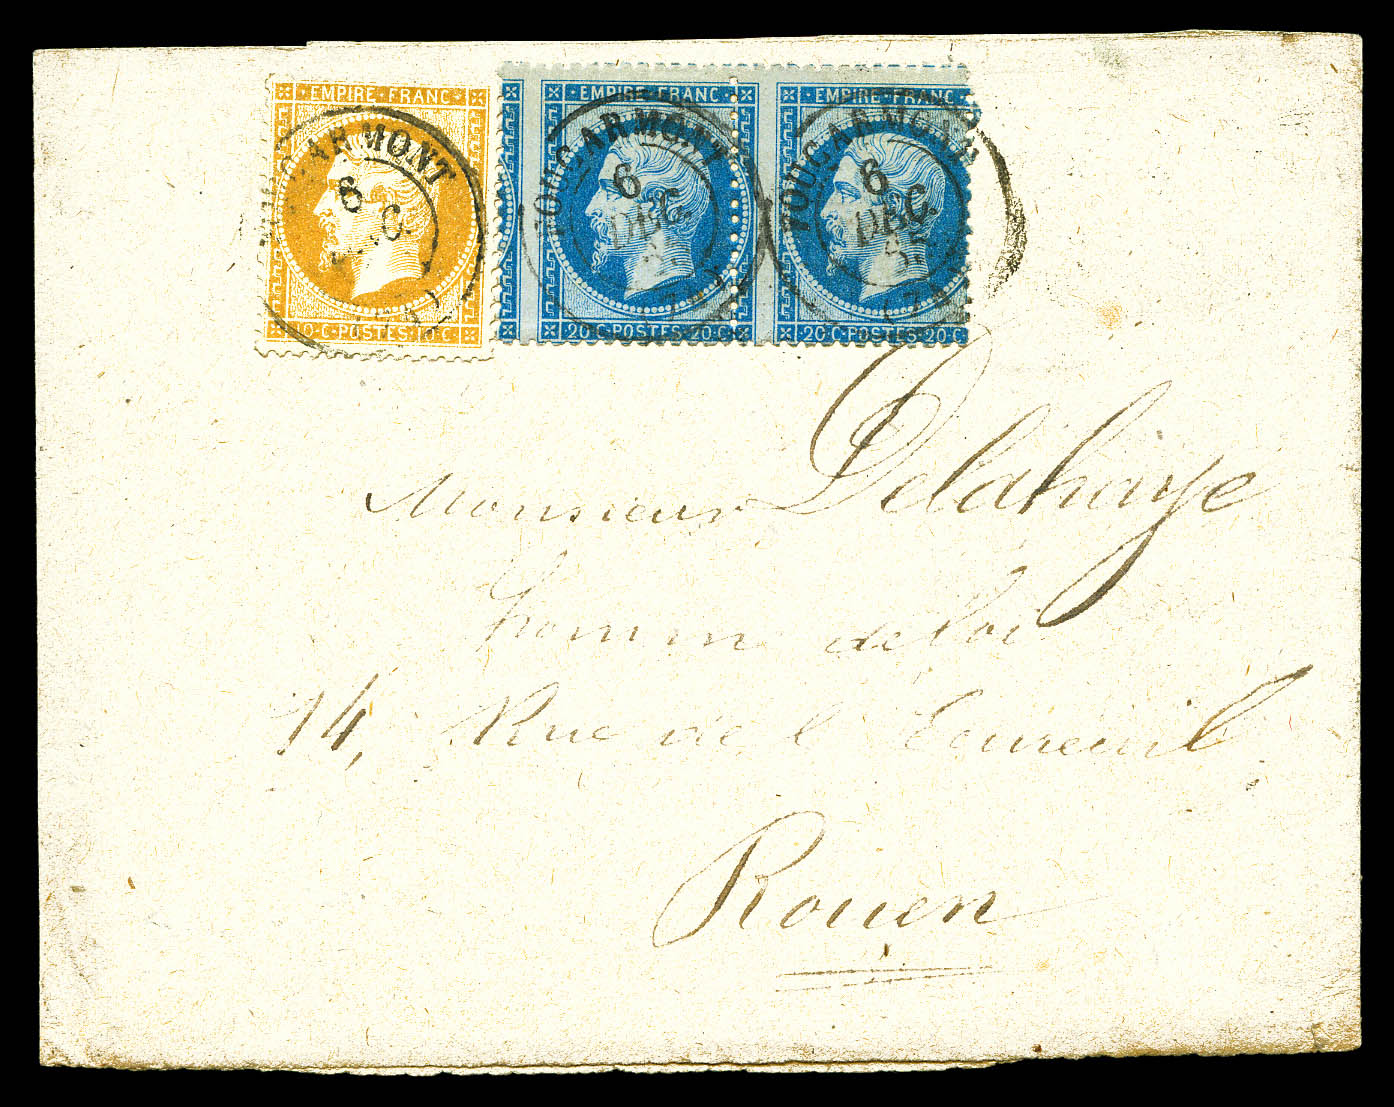 EMPIRE · FRANC ·
10 · C · POSTES · 10 · C
· EMPIRE · FRANC ·
20 · C · POSTES · 20 · C
· EMPIRE · FRANC
20 · C · POSTES · 20 · C
FOUCARMONT
6
DEC.
FOUCARMONT
6
DEC.
FOUCARMONT
6
DEC.
Monsieur Delahaye
homme de loi
14, Rue de l'Ecureuil
Rouen